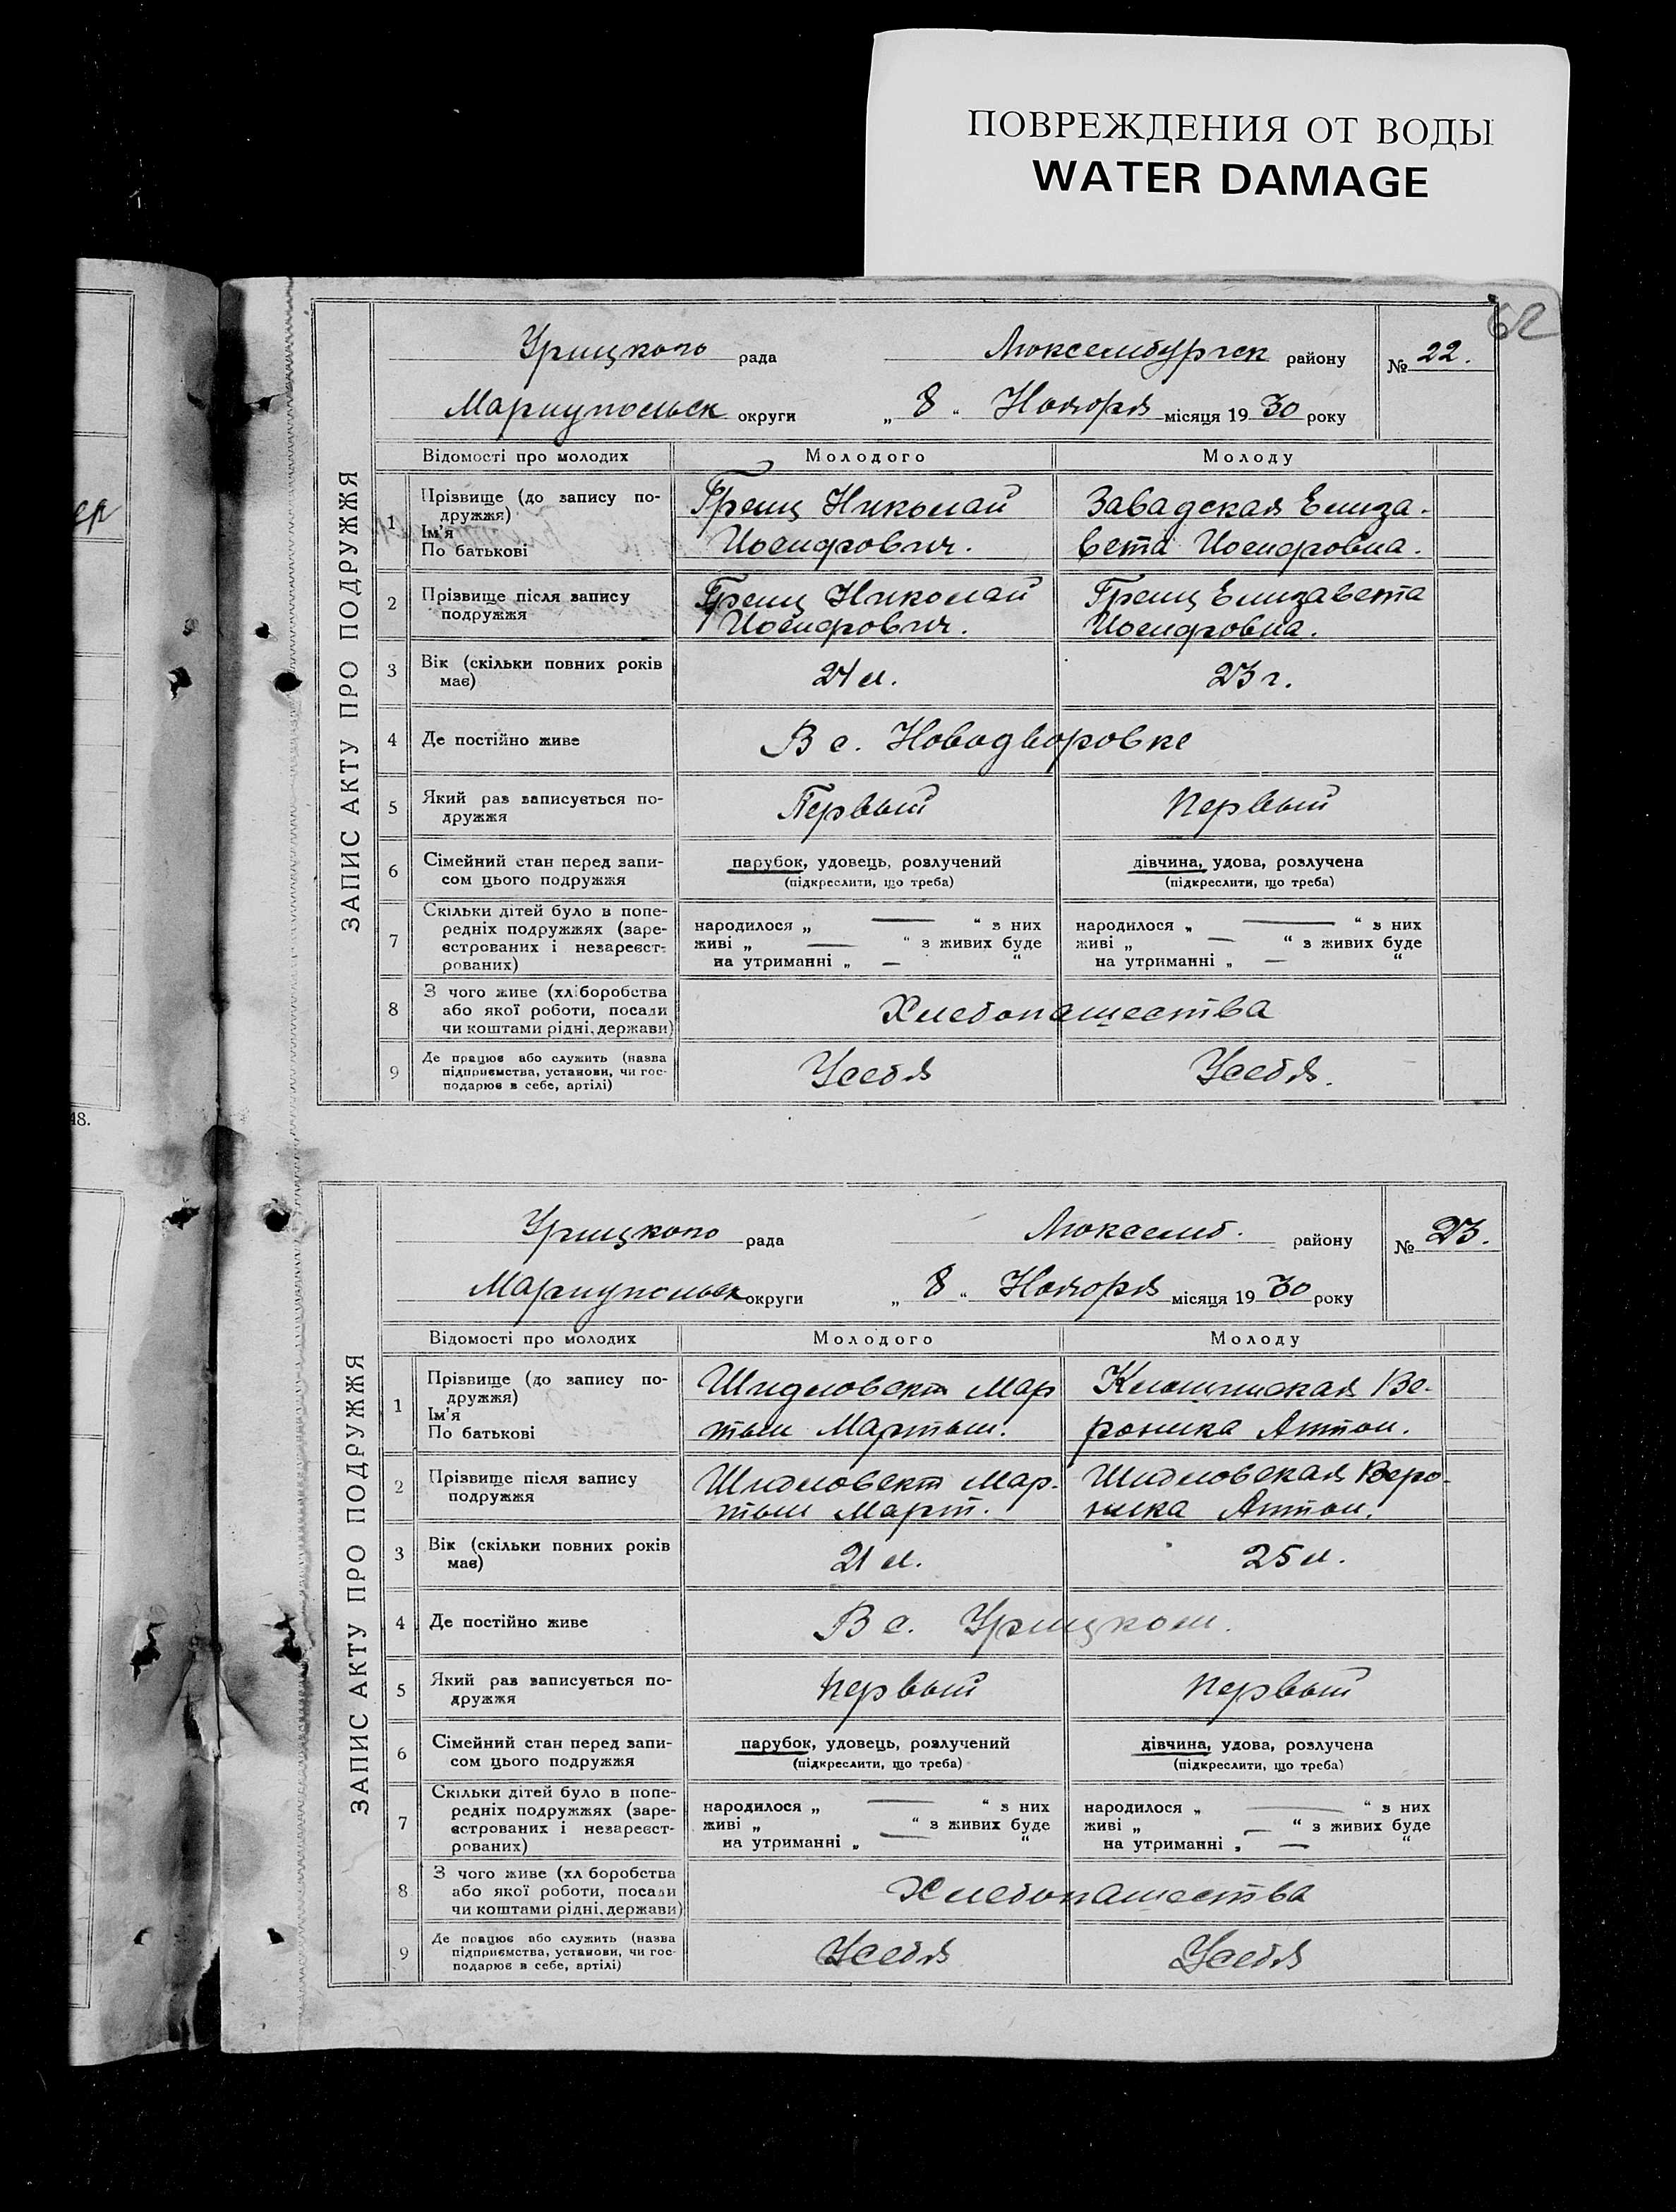 ПОВРЕЖДЕНИЯ ОТ ВОДЫ
WATER DAMAGE
62
ер
48.
ЗАПИС АКТУ ПРО ПОДРУЖЖЯ
Урицкого рада Люксембургск району № 22.
Мариупольск округи „ 8 “ Ноября місяця 19 30 року
Відомості про молодих Молодого Молоду
1 Прізвище (до запису по-
дружжя)
Ім'я
По батькові
Грещ Николай
Иосифович.
Завадская Елиза-
вета Иосифовна.
2 Прізвище після запису
подружжя
Грещ Николай
Иосифович.
Грещ Елизавета
Иосифовна.
3 Вік (скільки повних років
має)
24 л. 23 г.
4 Де постійно живе В с. Новодворовке
5 Який раз записується по-
дружжя
Первый Первый
6 Сімейний стан перед запи-
сом цього подружжя
парубок, удовець, розлучений
(підкреслити, що треба)
дівчина, удова, розлучена
(підкреслити, що треба)
7 Скільки дітей було в попе-
редніх подружжях (заре-
єстрованих і незареєст-
рованих)
народилося „ — “ з них
живі „ — “ з живих буде
на утриманні „ — “
народилося „ — “ з них
живі „ — “ з живих буде
на утриманні „ — “
8 З чого живе (хліборобства
або якої роботи, посади
чи коштами рідні, держави)
Хлебопашества
9 Де працює або служить (назва
підприємства, установи, чи гос-
подарює в себе, артілі)
Усебя Усебя.
ЗАПИС АКТУ ПРО ПОДРУЖЖЯ
Урицкого рада Люксемб. району № 23.
Мариупольск округи „ 8 “ Ноября місяця 19 30 року
Відомості про молодих Молодого Молоду
1 Прізвище (до запису по-
дружжя)
Ім'я
По батькові
Шидловски Мар
тын Мартын.
Ве-
роника Антон.
2 Прізвище після запису
подружжя
Шидловски Мар-
тын Март.
Шидловская Веро-
ника Антон.
3 Вік (скільки повних років
має)
21 л. 25 л.
4 Де постійно живе В с. Урицком.
5 Який раз записується по-
дружжя
Первый Первый
6 Сімейний стан перед запи-
сом цього подружжя
парубок, удовець, розлучений
(підкреслити, що треба)
дівчина, удова, розлучена
(підкреслити, що треба)
7 Скільки дітей було в попе-
редніх подружжях (заре-
єстрованих і незареєст-
рованих)
народилося „ — “ з них
живі „ — “ з живих буде
на утриманні „ “
народилося „ — “ з них
живі „ — “ з живих буде
на утриманні „ — “
8 З чого живе (хл боробства
або якої роботи, посади
чи коштами рідні, держави)
Хлебопашества
9 Де працює або служить (назва
підприємства, установи, чи гос-
подарює в себе, артілі)
Усебя Усебя